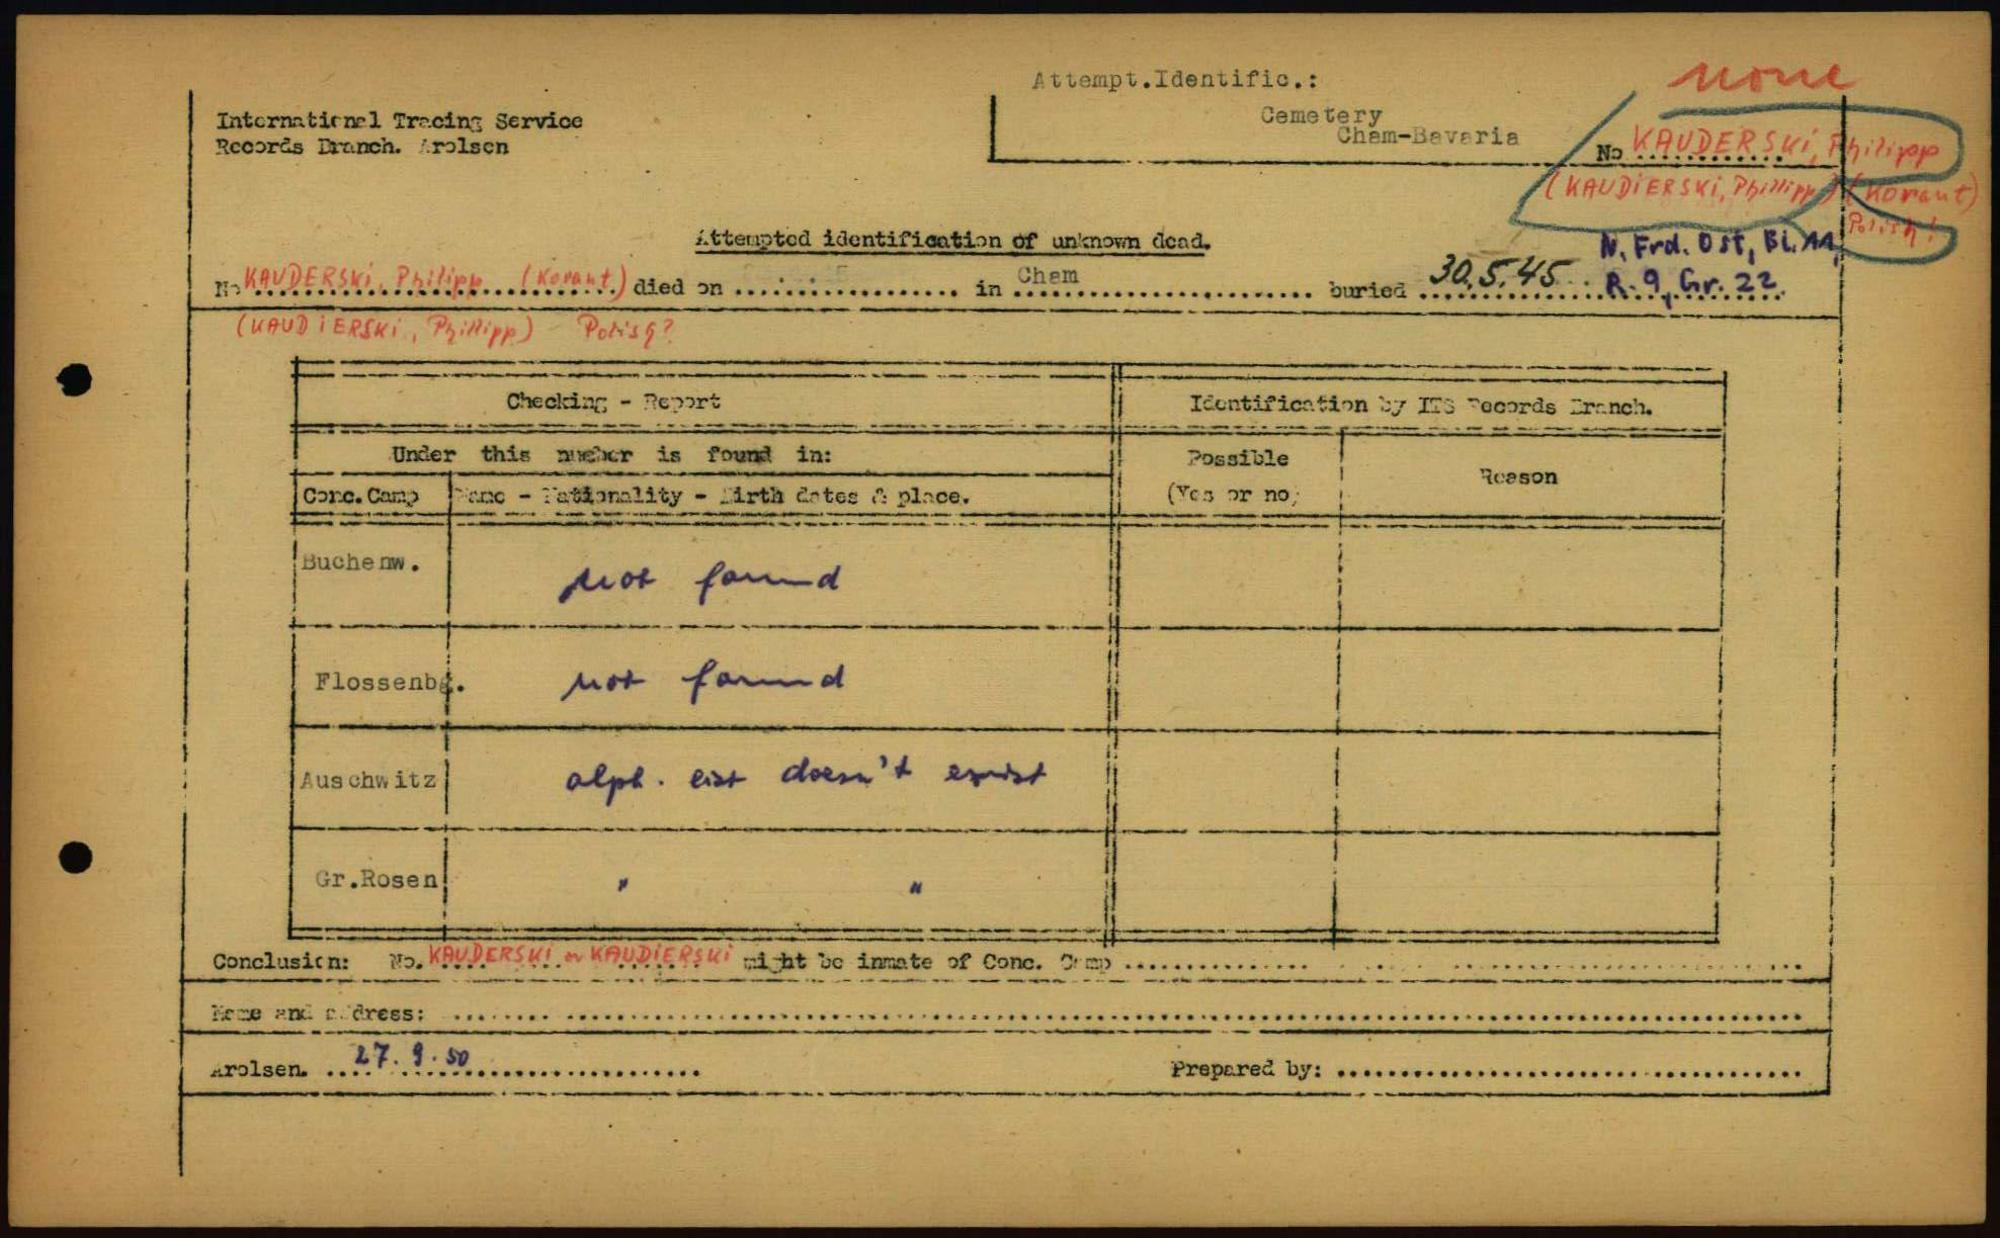 none
Attempt.Identific.:
International Tracing Service
Records Branch. Arolsen
Cemetery
Cham-Bavaria
No KAUDERSKI, Philipp
(KAUDIERSKI, Phillipp) (Korant)
Polish!
Attempted identification of unknown dead.
N. Frd. Ost, Bl. 11,
No KAUDERSKI, Philipp (Korant) died on .................. in Cham buried 30.5.45 R. 9, Gr. 22
(KAUDIERSKI, Phillipp) Polish?
Checking - Report
Identification by ITS Records Branch.
Under this number is found in:
Possible
(Yes or no)
Reason
Conc. Camp
Name - Nationality - Birth dates & place.
Buchenw.
not found
Flossenbg.
not found
Auschwitz
alph. list doesn't exist
Gr.Rosen
" "
Conclusion: No. KAUDERSKI or KAUDIERSKI might be inmate of Conc. Camp ..............
Name and address: ..............
Arolsen. 27.9.50
Prepared by: ..............